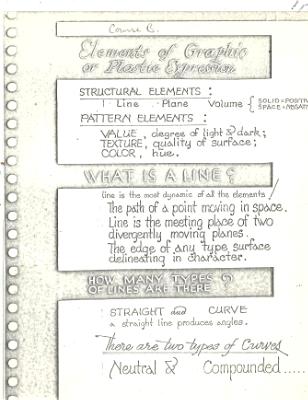 Course C.
Elements of Graphic
or Plastic Expression
STRUCTURAL ELEMENTS :
Line Plane Volume { SOLID = POSITIV
SPACE = NEGATI
PATTERN ELEMENTS :
VALUE, degree of light & dark;
TEXTURE, quality of surface;
COLOR, hue.
WHAT IS A LINE?
Line is the most dynamic of all the elements!
The path of a point moving in space.
Line is the meeting place of two
divergently moving planes.
The edge of any type surface
delineating in character.
HOW MANY TYPES
OF LINES ARE THERE ?
STRAIGHT and CURVE
a straight line produces angles.
There are two types of Curves
Neutral & Compounded.....